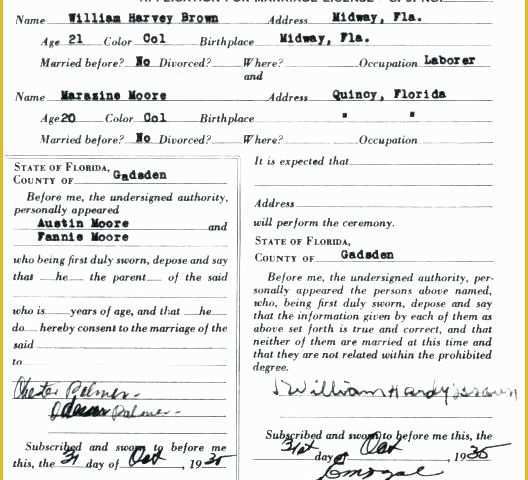 APPLICATION FOR MARRIAGE LICENSE
Name William Harvey Brown Address Midway, Fla.
Age 21 Color Col Birthplace Midway, Fla.
Married before? No Divorced? Where? Occupation Laborer
and
Name Marazine Moore Address Quincy, Florida
Age 20 Color Col Birthplace " "
Married before? No Divorced? Where? Occupation
STATE OF FLORIDA,
COUNTY OF Gadsden
Before me, the undersigned authority,
personally appeared
Austin Moore and
Fannie Moore
who being first duly sworn, depose and say
that he the parent of the said
who is years of age, and that he
do hereby consent to the marriage of the
said
to
Chester Palmer
Palmer
Subscribed and sworn to before me
this, the 31 day of Oct, 1935
It is expected that
Address
will perform the ceremony.
STATE OF FLORIDA,
COUNTY OF Gadsden
Before me, the undersigned authority, per-
sonally appeared the persons above named,
who, being first duly sworn, depose and say
that the information given by each of them as
above set forth is true and correct, and that
neither of them are married at this time and
that they are not related within the prohibited
degree.
William Hardy Brown
Subscribed and sworn to before me this, the
31st day Oct, 1935